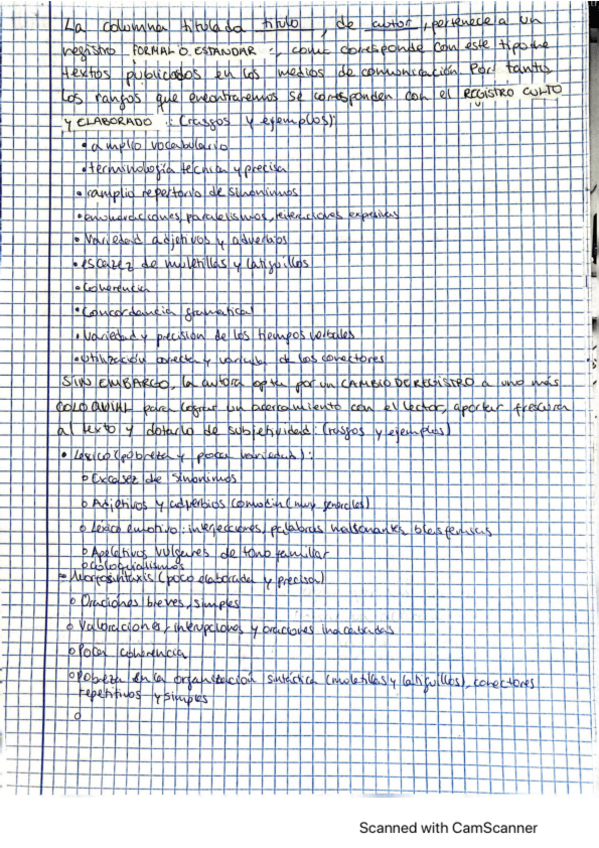 La columna titulada título, de autor, pertenece a un
registro FORMAL O ESTANDAR, como corresponde con este tipo de
textos publicados en los medios de comunicación. Por tanto
los rangos que encontraremos se corresponden con el REGISTRO CULTO
Y ELABORADO: (rasgos y ejemplos):
• amplio vocabulario
• terminología técnica y precisa
• amplio repertorio de sinónimos
• enumeraciones, paralelismos, reiteraciones expresivas
• Variedad adjetivos y adverbios
• escasez de muletillas y latiguillos
• Coherencia
• Concordancia gramatical
• Variedad y precisión de los tiempos verbales
• Utilización correcta y variada de los conectores
SIN EMBARGO, la autora opta por un CAMBIO DE REGISTRO a uno más
COLOQUIAL para lograr un acercamiento con el lector, aportar frescura
al texto y dotarlo de subjetividad: (rasgos y ejemplos)
• Léxico (pobreza y poca variedad):
o Escasez de sinónimos
o Adjetivos y adverbios comodín (muy generales)
o Léxico emotivo: interjecciones, palabras malsonantes, blasfemias
o Apelativos vulgares de tono familiar
o coloquialismos
• Morfosintaxis (poco elaborada y precisa)
o Oraciones breves, simples
o Valoraciones, interrupciones y oraciones inacabadas
o Poca coherencia
o Pobreza en la organización sintáctica (muletillas y latiguillos), conectores
repetitivos y simples
o
Scanned with CamScanner